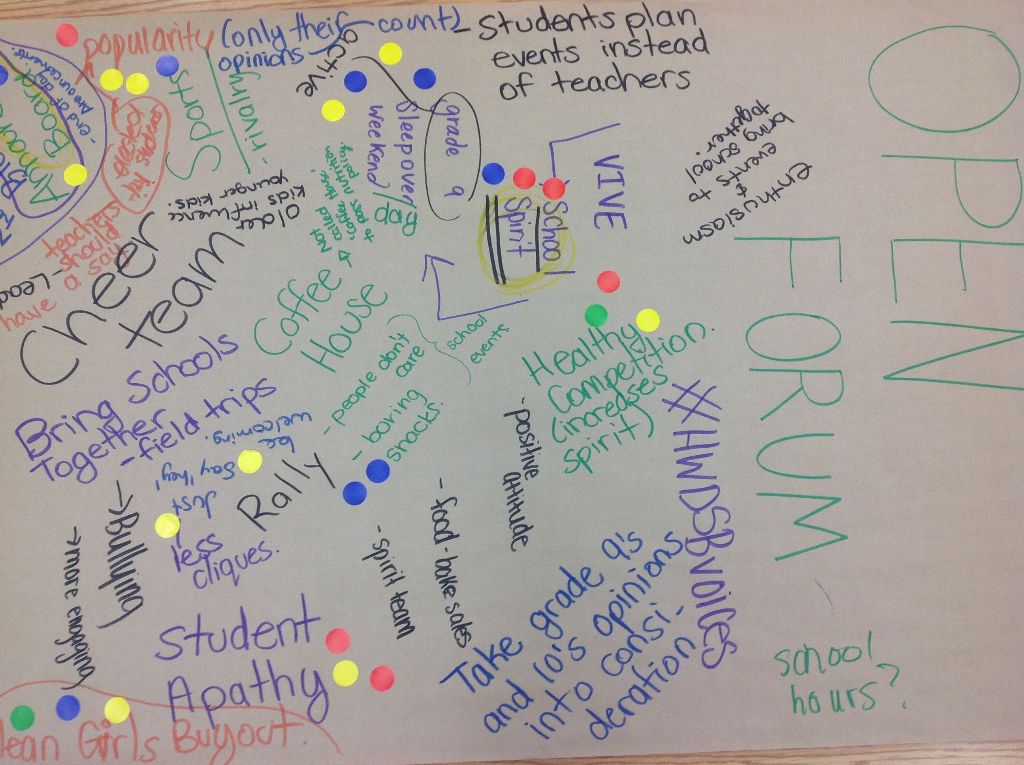 OPEN
FORUM
popularity
(only their count)
opinions
active
- Students plan
events instead
of teachers
enthusiasm
events &
bring school
together
VIVE
School
Spirit
grade 9
Sleepover
weekend
Sports
- rivalry
- end of day
announcements.
Older
kids influence
younger kids.
teachers
should
have a say
Cheer
team
- Lead
Coffee
House
NOT
called
"coffee House"
to pass nutrition
policy.
- people don't
care
- boring
snacks.
school
events
Healthy
Competition.
(increases
spirit)
#HWDSBvoices
- positive
attitude
Bring Schools
Together
- field trips
Just
say "hey",
be
welcoming.
Rally
less
cliques.
→ Bullying
→ more engaging
- spirit team
- food-bake sales
Student
Apathy
Take grade 9's
and 10's opinions
into consi-
deration.
school
hours?
ean Girls Buyout.